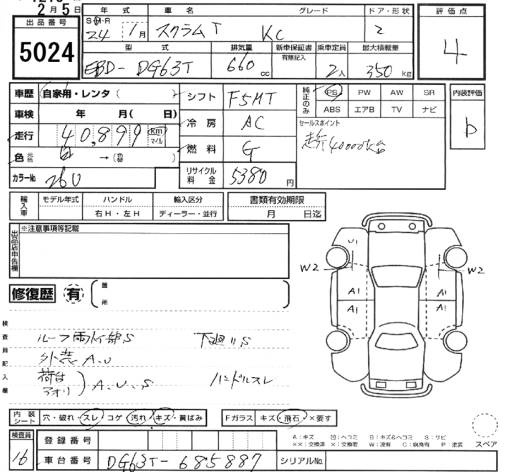 2月5日
出品番号
5024
年式 車名 グレード ドア・形状
S・H・R 24年 1月 スクラムT KC 2
型式 排気量 新車保証書 有無記入 乗車定員 最大積載量
EBD-DG63T 660cc 2人 350kg
評価点
4
車歴 自家用・レンタ( )
シフト F5MT
車検 年 月(日)
冷房 AC
走行 40,899 km マイル
燃料 G
色 白 →
カラーNo. 26U
リサイクル料金 5380円
純正のみ
PS PW AW SR
ABS エアB TV ナビ
セールスポイント
内装評価
b
輸入車 モデル年式 ハンドル 右H・左H 輸入区分 ディーラー・並行
書類有効期限
月 日迄
※注意事項等記載
出品店申告欄
修復歴 有
箇所
W2 U1 A1 A1 A1 W2
検査員記入欄
ルーフ雨水部S 下廻りS
外装 A.U
荷台 アオリ A.U.S ハンドルスレ
内装シート 穴・破れ・スレ・コゲ・汚れ・キズ・黄ばみ
Fガラス キズ・飛石・×要す
スペア
検査員
16
登録番号
車台番号 DG63T-685887 シリアルNo.